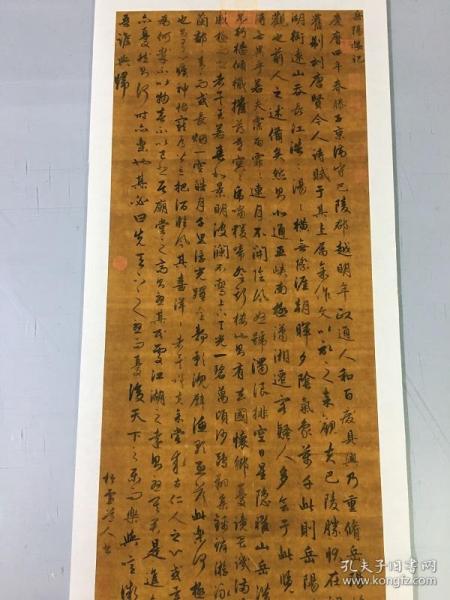 岳陽樓記
慶曆四年春滕子京謫守巴陵郡越明年政通人和百廢具興乃重修岳
舊制刻唐賢今人詩賦于其上屬余作文以記之予觀夫巴陵勝狀在
湖銜遠山吞長江浩浩湯湯橫無際涯朝暉夕陰氣象萬千此則岳陽
觀也前人之述備矣然則北通巫峽南極瀟湘遷客騷人多會于此覽
得無異乎若夫霪雨霏霏連月不開陰風怒號濁浪排空日星隱曜山岳
不行檣傾楫摧薄暮冥冥虎嘯猿啼登斯樓也則有去國懷鄉憂讒畏譏滿
極而悲者矣至若春和景明波瀾不驚上下天光一碧萬頃沙鷗翔集錦鱗游泳
蘭郁郁青青而或長烟一空皓月千里浮光躍金靜影沉璧漁歌互答此樂何極
也則有心曠神怡寵辱皆忘把酒臨風其喜洋洋者矣嗟夫予嘗求古仁人之心或異
為何哉不以物喜不以己悲居廟堂之高則憂其民處江湖之遠則憂其君是進
亦憂然則何時而樂耶其必曰先天下之憂而憂後天下之樂而樂與噫微
吾誰與歸
道人書
孔夫子旧书网